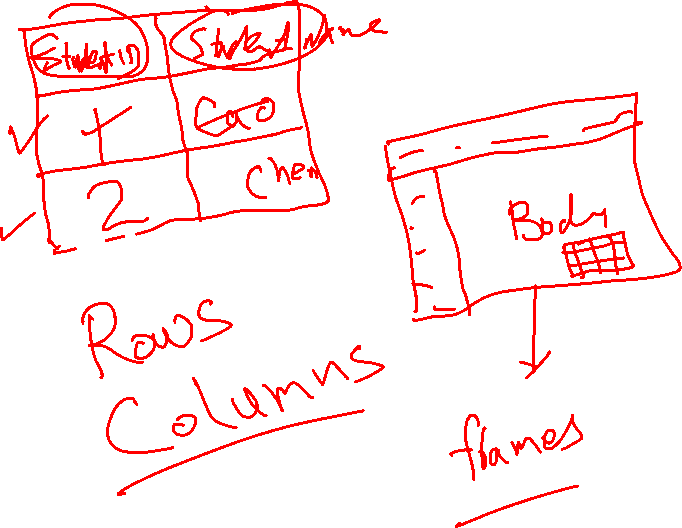 Student ID Student Name
1 Gao
2 Chen
Body
Rows
Columns
frames